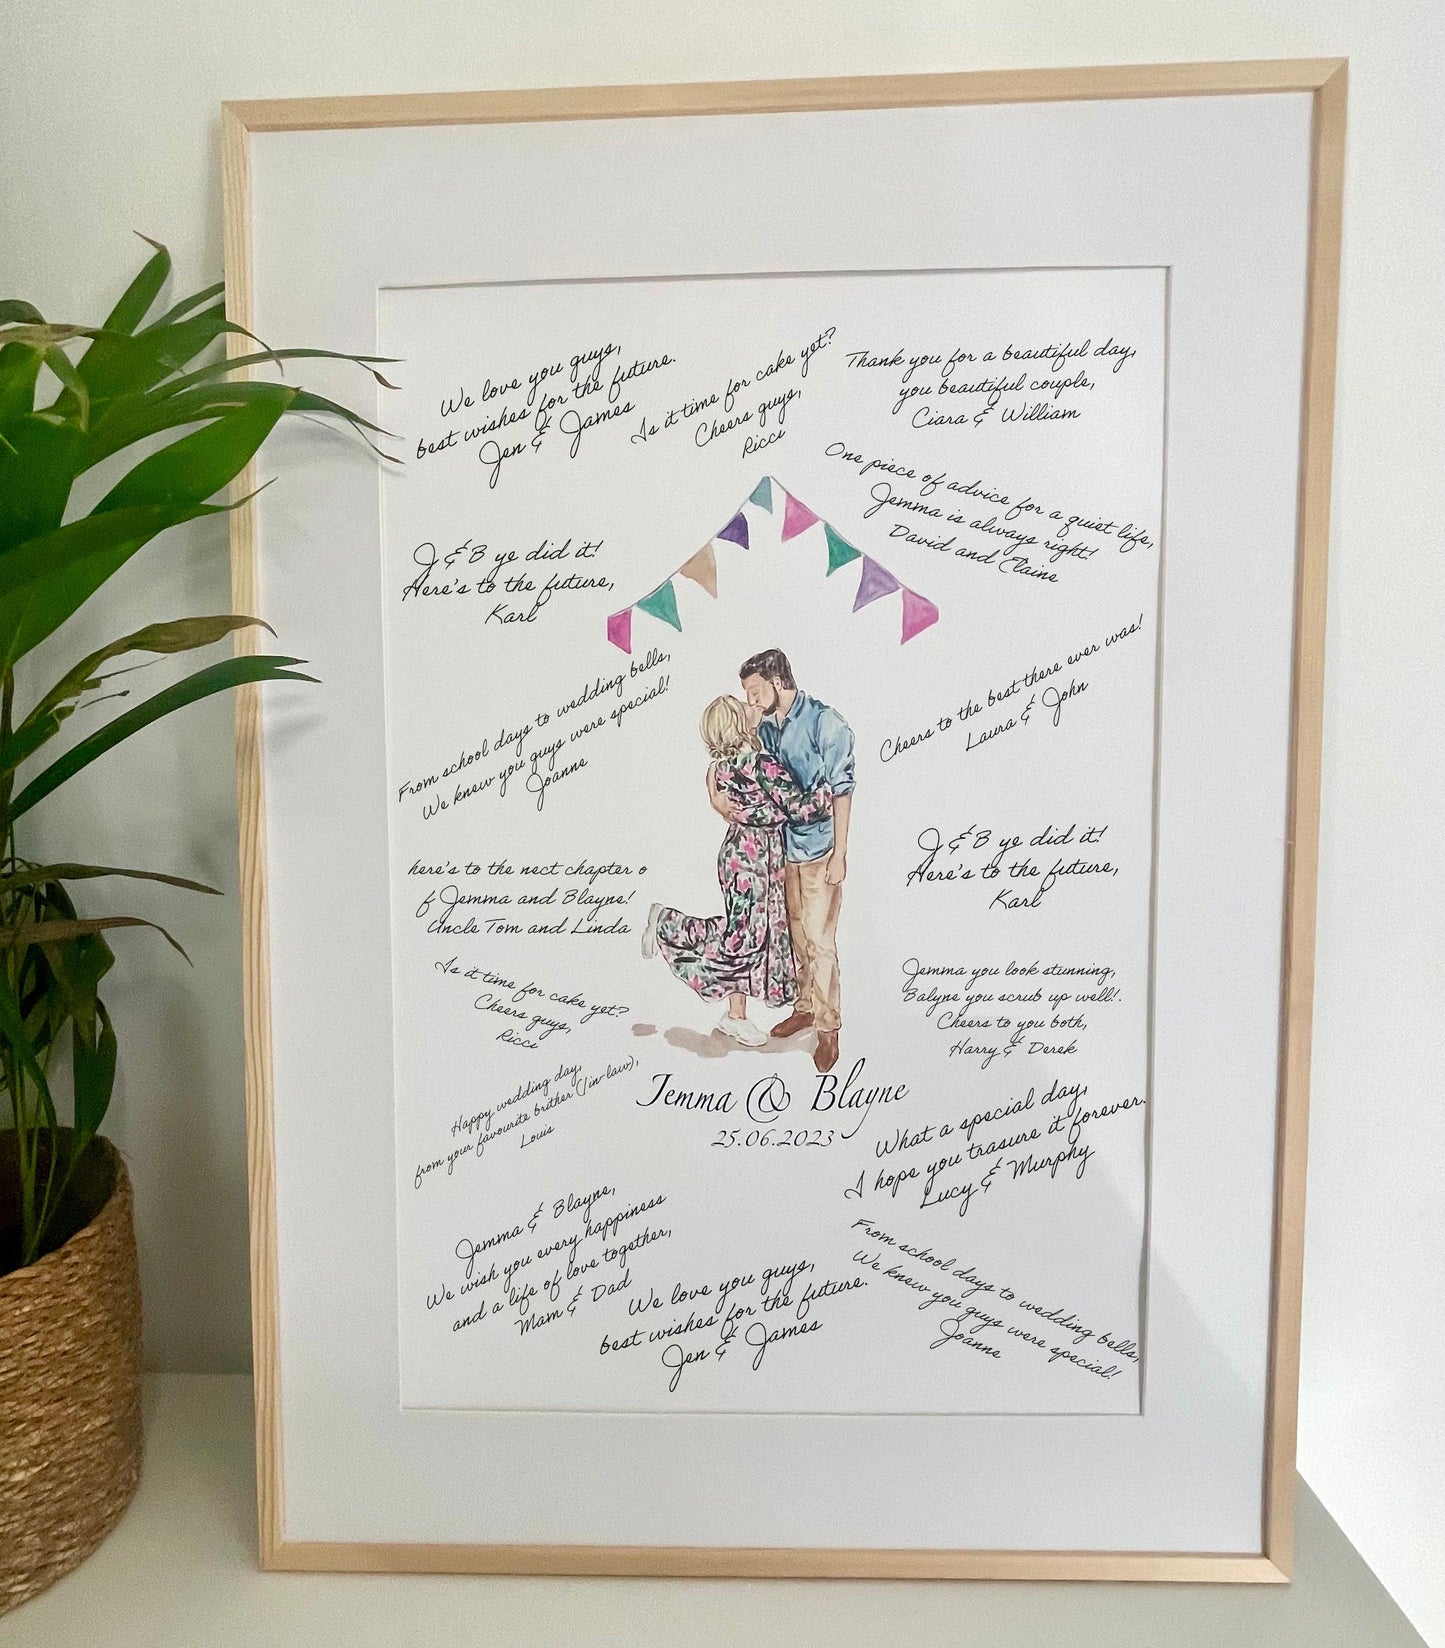 We love you guys,
best wishes for the future.
Jen & James
Is it time for cake yet?
Cheers guys,
Ricci
Thank you for a beautiful day,
you beautiful couple,
Ciara & William
One piece of advice for a quiet life,
Jemma is always right!
David and Elaine
J & B ye did it!
Here's to the future,
Karl
From school days to wedding bells,
We knew you guys were special!
Joanne
Cheers to the best there ever was!
Laura & John
J & B ye did it!
Here's to the future,
Karl
here's to the nect chapter o
f Jemma and Blayne!
Uncle Tom and Linda
Is it time for cake yet?
Cheers guys,
Ricci
Jemma you look stunning,
Balyne you scrub up well!.
Cheers to you both,
Harry & Derek
Happy wedding day,
from your favourite brither (in-law),
Louis
Jemma & Blayne
25.06.2023
What a special day,
I hope you trasure it forever.
Lucy & Murphy
Jemma & Blayne,
We wish you every happiness
and a life of love together,
Mam & Dad
We love you guys,
best wishes for the future.
Jen & James
From school days to wedding bells,
We knew you guys were special!
Joanne